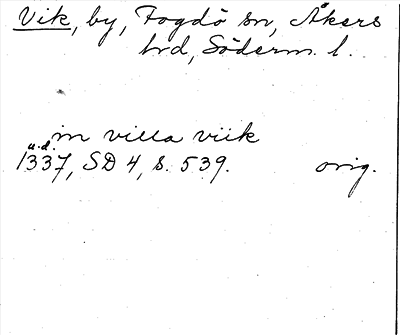 Vik, by, Fogdö sn, Åkers
hrd, Söderm. l.
in villa viik
u.d.
1337, SD 4, s. 539. orig.